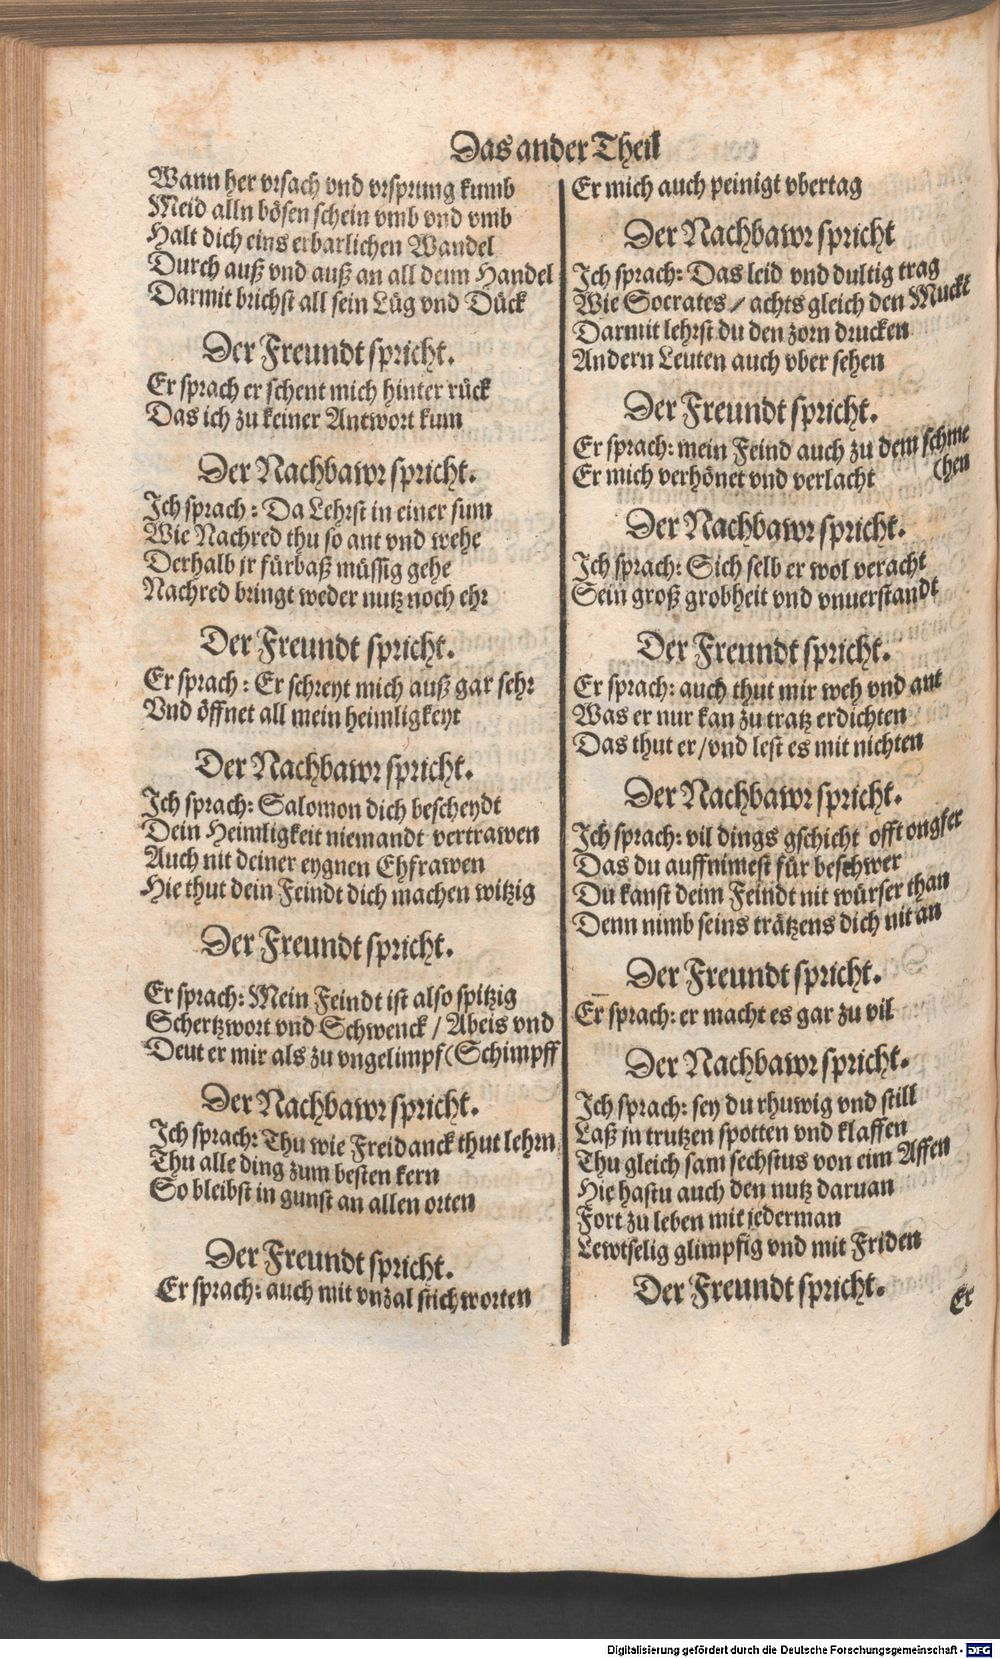 Das ander Theil
Wann her vrsach vnd vrsprung kumb
Meid alln bösen schein vmb vnd vmb
Halt dich eins erbarlichen Wandel
Durch auß vnd auß an all deim Handel
Darmit brichst all sein Lüg vnd Dück
Der Freundt spricht.
Er sprach er schent mich hinter rück
Das ich zu keiner Antwort kum
Der Nachbawr spricht.
Ich sprach: Da Lehrst in einer sum
Wie Nachred thu so ant vnd wehe
Derhalb ir fürbaß müssig gehe
Nachred bringt weder nutz noch ehr
Der Freundt spricht.
Er sprach: Er schreyt mich auß gar sehr
Vnd öffnet all mein heimligkeyt
Der Nachbawr spricht.
Ich sprach: Salomon dich bescheydt
Dein Heimligkeit niemandt vertrawen
Auch nit deiner eygnen Ehfrawen
Hie thut dein Feindt dich machen witzig
Der Freundt spricht.
Er sprach: Mein Feindt ist also spitzig
Schertzwort vnd Schwenck / Abeis vnd
Deut er mir als zu vngelimpf (Schimpff
Der Nachbawr spricht.
Ich sprach: Thu wie Freidanck thut lehrn
Thu alle ding zum besten kern
So bleibst in gunst an allen orten
Der Freundt spricht.
Er sprach: auch mit vnzal stichworten
Er mich auch peinigt vbertag
Der Nachbawr spricht
Ich sprach: Das leid vnd dultig trag
Wie Socrates / achts gleich den Muckt
Darmit lehrst du den zorn drucken
Andern Leuten auch vber sehen
Der Freundt spricht.
Er sprach: mein Feind auch zu dem schme
Er mich verhönet vnd verlacht (hen
Der Nachbawr spricht.
Ich sprach: Sich selb er wol veracht
Sein groß grobheit vnd vnuerstandt
Der Freundt spricht.
Er sprach: auch thut mir weh vnd ant
Was er nur kan zu tratz erdichten
Das thut er / vnd lest es mit nichten
Der Nachbawr spricht.
Ich sprach: vil dings gschicht offt ongfer
Das du auffnimest für beschwer
Du kanst deim Feindt nit würser than
Denn nimb seins trätzens dich nit an
Der Freundt spricht.
Er sprach: er macht es gar zu vil
Der Nachbawr spricht.
Ich sprach: sey du rhuwig vnd still
Laß in trutzen spotten vnd klaffen
Thu gleich sam sechstus von eim Affen
Hie hastu auch den nutz daruan
Fort zu leben mit jederman
Lewtselig glimpfig vnd mit Friden
Der Freundt spricht.
Er
Digitalisierung gefördert durch die Deutsche Forschungsgemeinschaft - DFG